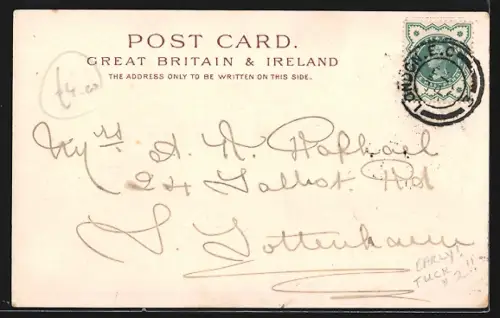 POST CARD.
GREAT BRITAIN & IRELAND
THE ADDRESS ONLY TO BE WRITTEN ON THIS SIDE.
LONDON. E.C.
£4.00
Mrs A. R. Raphael
24 Talbot Rd
S. Tottenham
EARLY!
TUCK